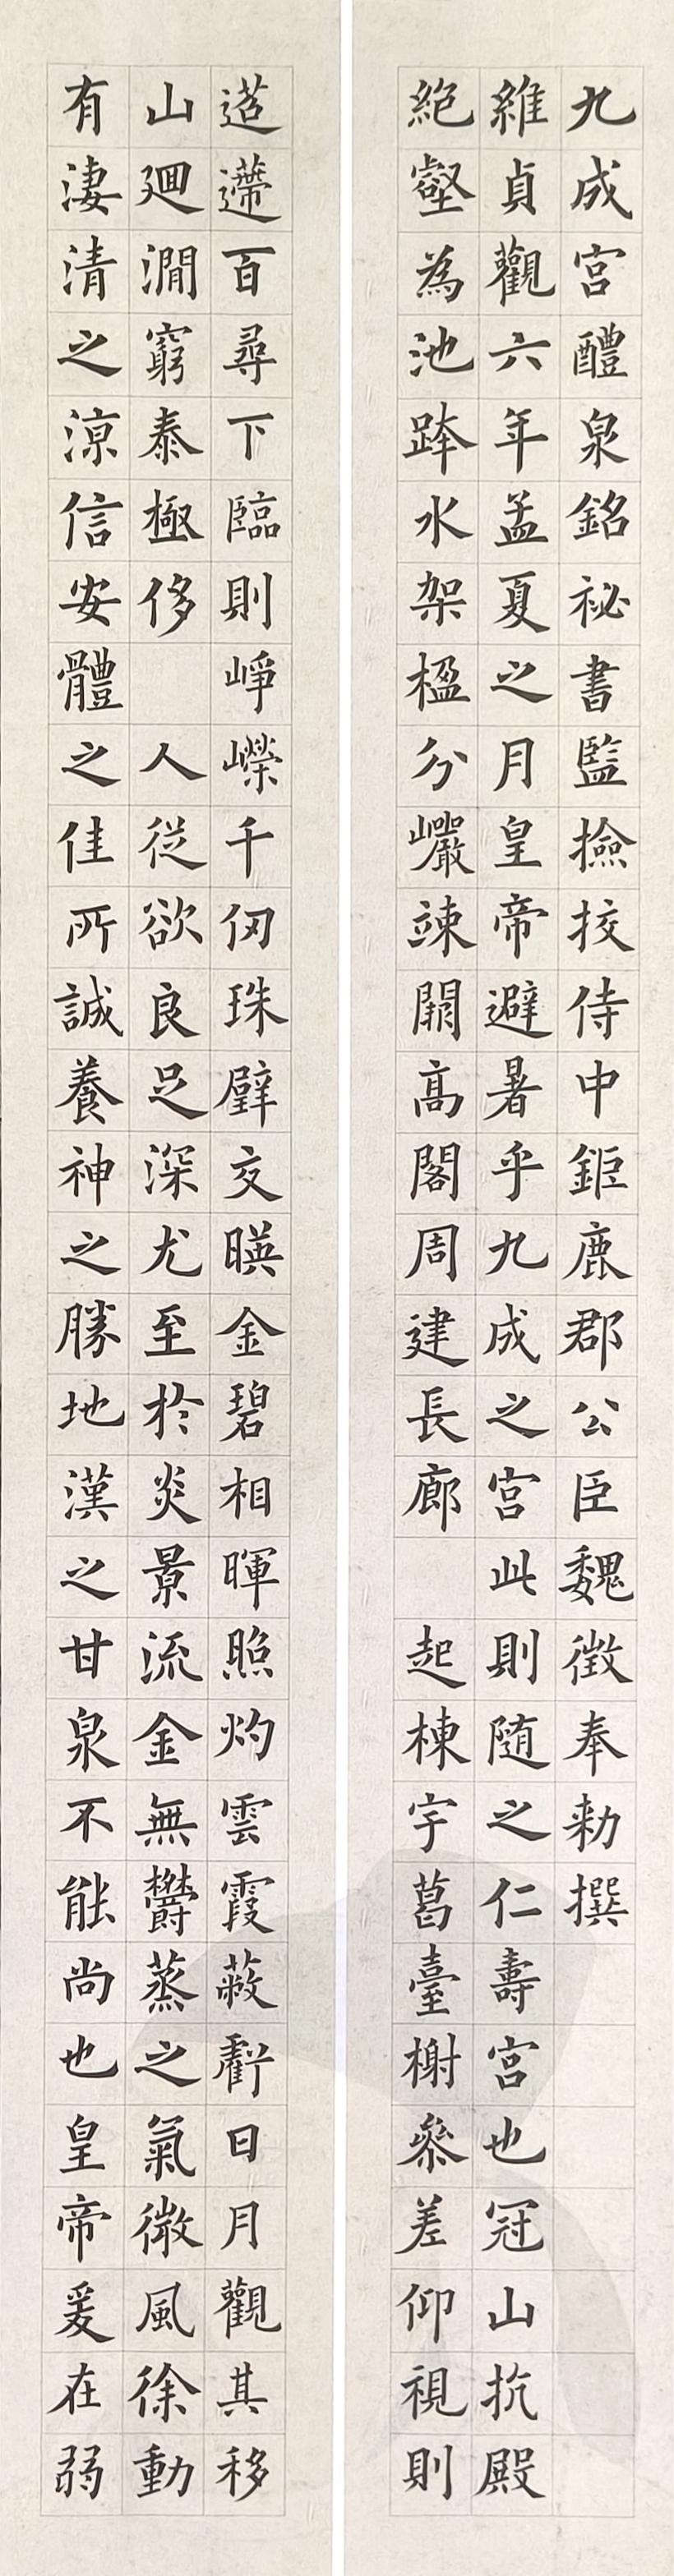 九成宮醴泉銘祕書監撿挍侍中鉅鹿郡公臣魏徵奉勑撰
維貞觀六年孟夏之月皇帝避暑乎九成之宮此則随之仁壽宮也冠山抗殿
絕壑為池跨水架楹分巖竦闕高閣周建長廊起棟宇葛臺榭叅差仰視則
迢遰百尋下臨則崢嶸千仞珠壁交暎金碧相暉照灼雲霞蔽虧日月觀其移
山廻澗窮泰極侈人從欲良足深尤至於炎景流金無鬱蒸之氣微風徐動
有淒清之涼信安體之佳所誠養神之勝地漢之甘泉不能尚也皇帝爰在弱